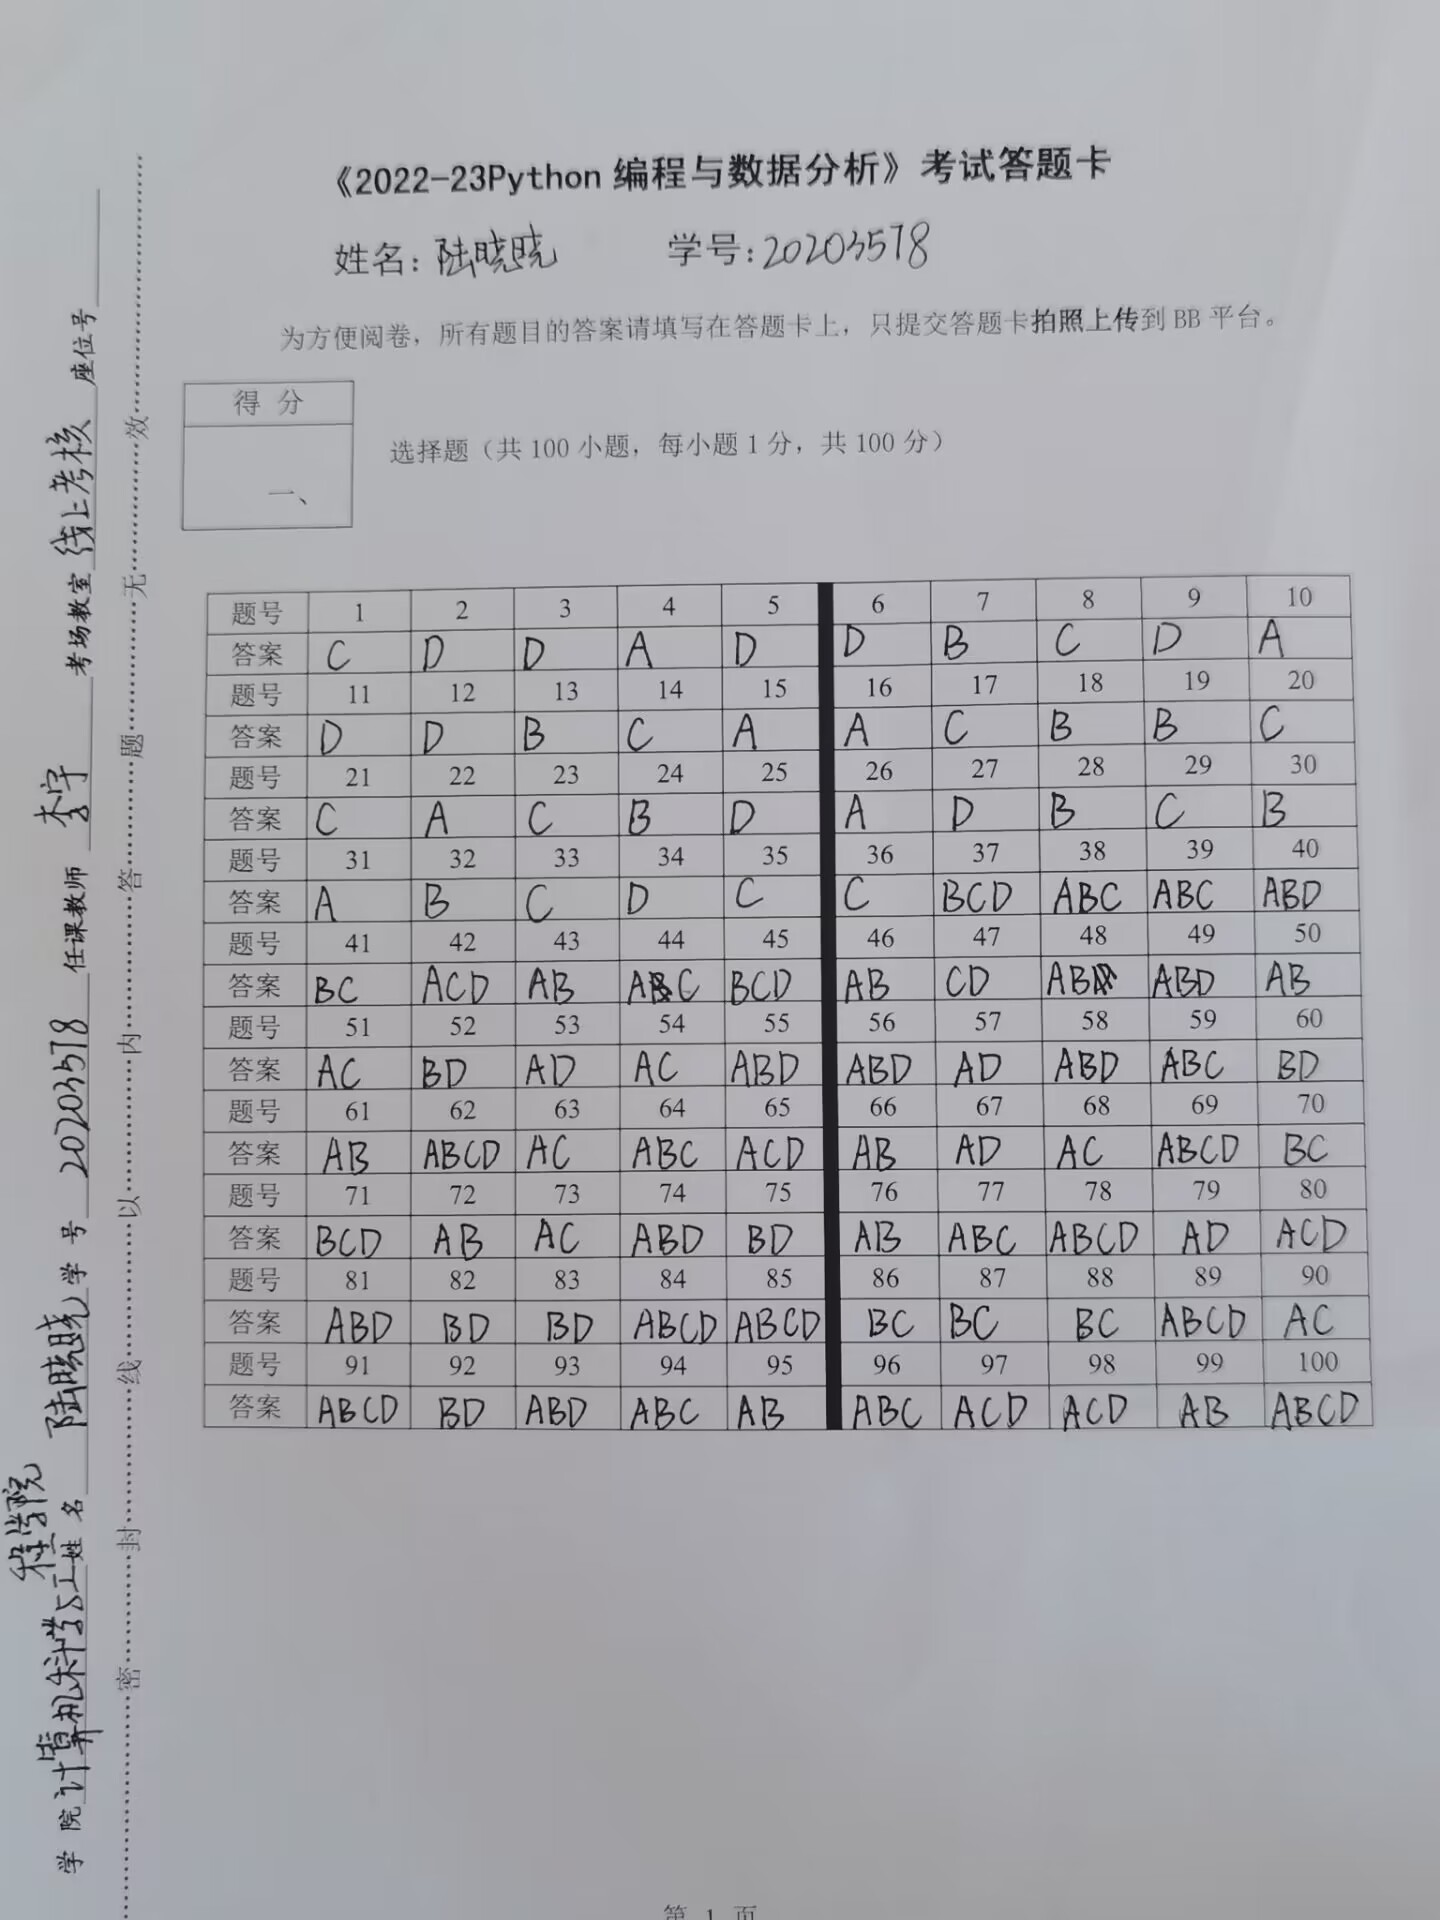 《2022-23Python 编程与数据分析》考试答题卡
姓名：陆晓晓 学号：20203578
为方便阅卷，所有题目的答案请填写在答题卡上，只提交答题卡拍照上传到 BB 平台。
得 分
一、
选择题（共 100 小题，每小题 1 分，共 100 分）
题号 1 2 3 4 5 6 7 8 9 10
答案 C D D A D D B C D A
题号 11 12 13 14 15 16 17 18 19 20
答案 D D B C A A C B B C
题号 21 22 23 24 25 26 27 28 29 30
答案 C A C B D A D B C B
题号 31 32 33 34 35 36 37 38 39 40
答案 A B C D C C BCD ABC ABC ABD
题号 41 42 43 44 45 46 47 48 49 50
答案 BC ACD AB AC BCD AB CD AB ABD AB
题号 51 52 53 54 55 56 57 58 59 60
答案 AC BD AD AC ABD ABD AD ABD ABC BD
题号 61 62 63 64 65 66 67 68 69 70
答案 AB ABCD AC ABC ACD AB AD AC ABCD BC
题号 71 72 73 74 75 76 77 78 79 80
答案 BCD AB AC ABD BD AB ABC ABCD AD ACD
题号 81 82 83 84 85 86 87 88 89 90
答案 ABD BD BD ABCD ABCD BC BC BC ABCD AC
题号 91 92 93 94 95 96 97 98 99 100
答案 ABCD BD ABD ABC AB ABC ACD ACD AB ABCD
学 院 计算机科学与工程学院 姓 名 陆晓晓 学 号 20203578 任课教师 李宇 考场教室 线上考核 座位号
密 封 线 以 内 答 题 无 效
第 1 页